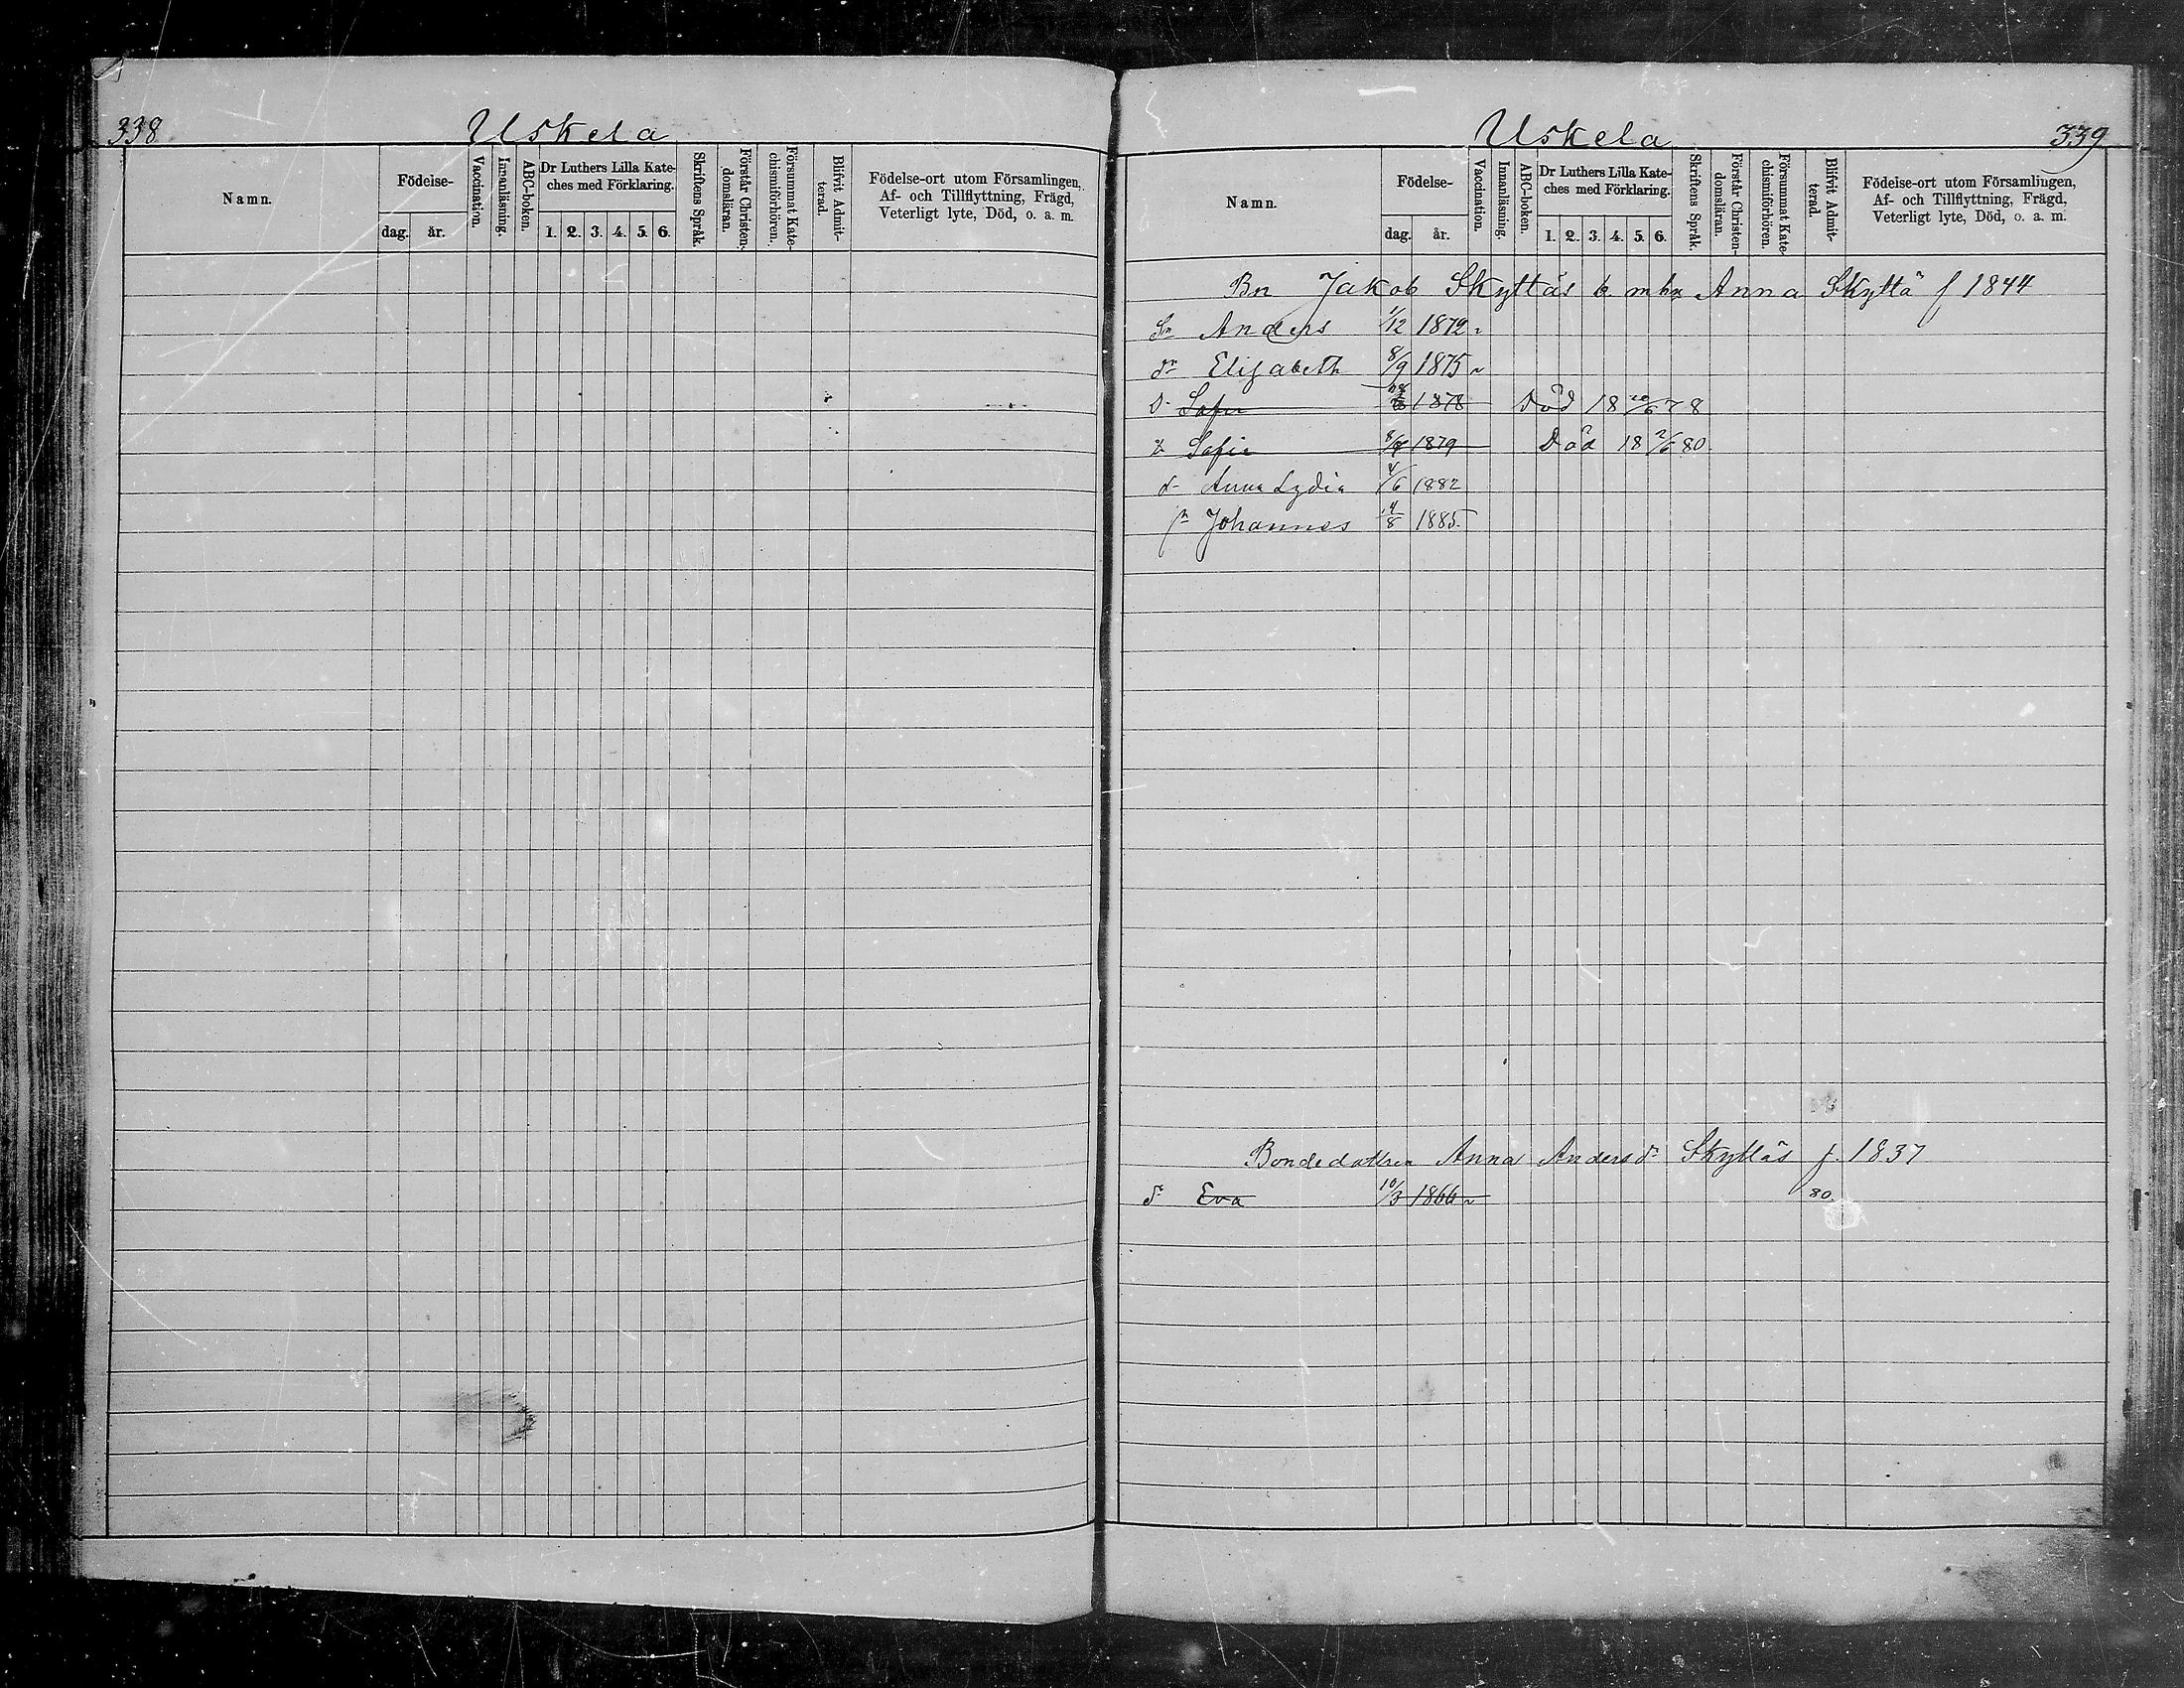 338
Uskela
Namn.
Födelse-
dag.
år.
Vaccination.
Innanläsning.
ABC-boken.
Dr Luthers Lilla Kate-
ches med Förklaring.
1. 2. 3. 4. 5. 6.
Skriftens Språk.
Förstår Christen-
domsläran.
Försummat Kate-
chismiförhören.
Blifvit Admit-
terad.
Födelse-ort utom Församlingen,
Af- och Tillflyttning, Frägd,
Veterligt lyte, Död, o. a. m.
Uskela
339
Namn.
Födelse-
dag.
år.
Vaccination.
Innanläsning.
ABC-boken.
Dr Luthers Lilla Kate-
ches med Förklaring.
1. 2. 3. 4. 5. 6.
Skriftens Språk.
Förstår Christen-
domsläran.
Försummat Kate-
chismiförhören.
Blifvit Admit-
terad.
Födelse-ort utom Församlingen,
Af- och Tillflyttning, Frägd,
Veterligt lyte, Död, o. a. m.
Bn Jakob Skyttäs b. m hu Anna Skyttä f 1844
Sn Anders 1/12 1872
dr Elisabeth 8/9 1875
D. 1878 Död 18 20/6 78
Sofia 1879 Död 18 2/6 80.
d Anna Lydia 4/6 1882
sn Johannes 14/8 1885.
Bondedottren Anna Andersdr Skyttäs f. 1837
dr Eva 10/3 1866 80.